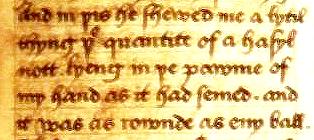 And in þis he shewed me a lytil
thyng þe quantite of a hasyl
nott. lyeng in þe pawme of
my hand as it had semed. and
it was as rownde as eny ball.